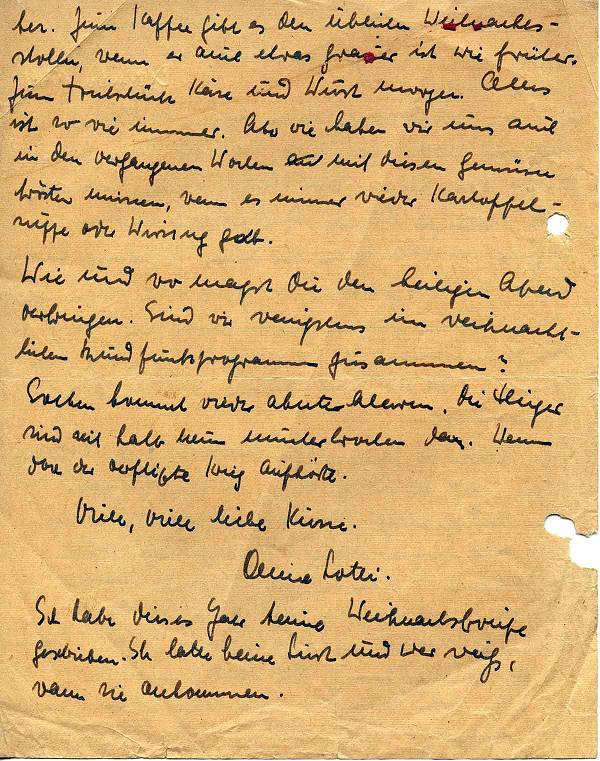 her. Zum Kaffee gibt es den üblichen Weihnachts-
stollen, wenn er auch etwas grauer ist wie früher.
Zum Frühstück Käse und Wurst morgen. Alles
ist so wie immer. Also wie haben wir uns auch
in den vergangenen Wochen mit diesen Genüssen
trösten müssen, wenn es immer wieder Kartoffel-
suppe oder Wirsing gab.
Wie und wo magst Du den heiligen Abend
verbringen. Sind wir wenigstens im weihnacht-
lichen Rundfunkprogramm zusammen?
Soeben kommt wieder akuter Alarm. Die Flieger
sind seit halb neun ununterbrochen da. Wenn
doch der Krieg aufhörte.
Viele, viele liebe Küsse.
Deine Lotti.
Ich habe dieses Jahr keine Weihnachtsbriefe
geschrieben. Ich hatte keine Lust und wer weiß,
wann sie ankommen.